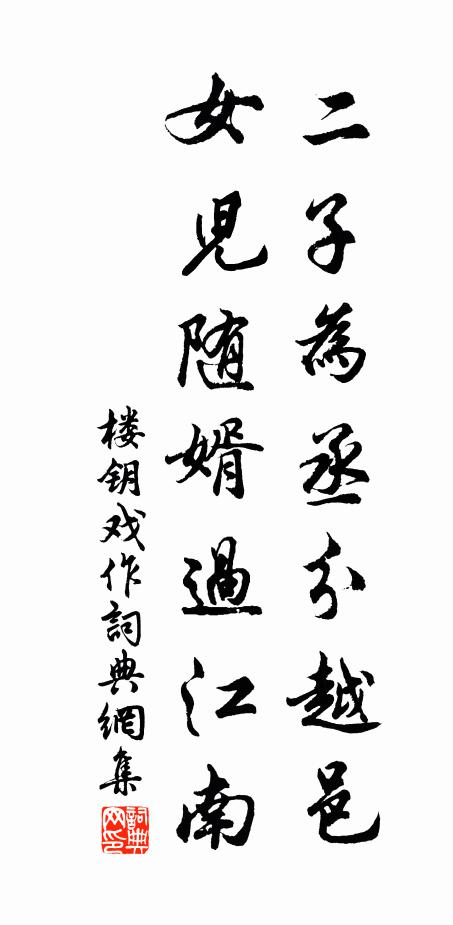 二子為丞分越邑
女児随婿過江南
楼钥戏作詞典網集
詞典网印